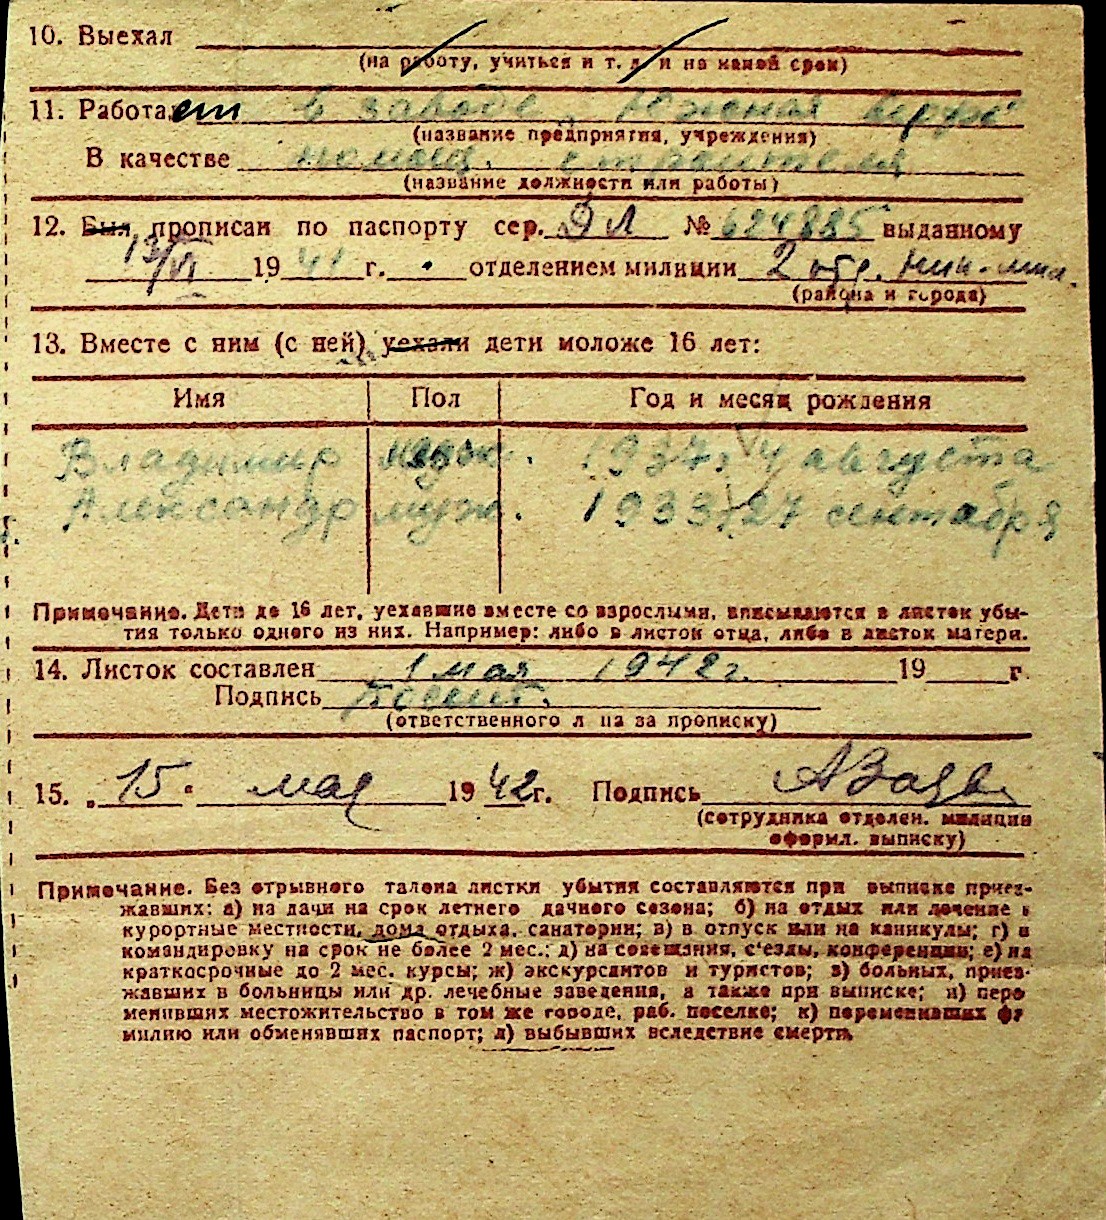 10. Выехал
(на работу, учиться и т. д. и на какой срок)
11. Работает в заводе Южная верфь
(название предприятия, учреждения)
В качестве помощ. строителя
(название должности или работы)
12. Был прописан по паспорту сер. ДЛ № 624885 выданному
13/VI 1941 г. • отделением милиции 2 отд. Ник.
(района и города)
13. Вместе с ним (с ней) уехали дети моложе 16 лет:
Имя Пол Год и месяц рождения
Владимир муж. 1937. 4 августа
Александр муж. 1933 27 сентября
Примечание. Дети до 16 лет, уехавшие вместе со взрослыми, вписываются в листок убы-
тия только одного из них. Например: либо в листок отца, либо в листок матери.
14. Листок составлен 1 мая 1942 г. 19 г.
Подпись
(ответственного л ца за прописку)
15. „15“ мая 1942 г. Подпись
(сотрудника отделен. милиции
оформл. выписку)
Примечание. Без отрывного талона листки убытия составляются при выписке приез-
жавших: а) на дачи на срок летнего дачного сезона; б) на отдых или лечение в
курортные местности, дома отдыха, санатории; в) в отпуск или на каникулы; г) в
командировку на срок не более 2 мес.; д) на совещания, с'езды, конференции; е) на
краткосрочные до 2 мес. курсы; ж) экскурсантов и туристов; з) больных, приез-
жавших в больницы или др. лечебные заведения, а также при выписке; и) пере
менивших местожительство в том же городе, раб. поселке; к) переменивших фа
милию или обменявших паспорт; л) выбывших вследствие смерти.